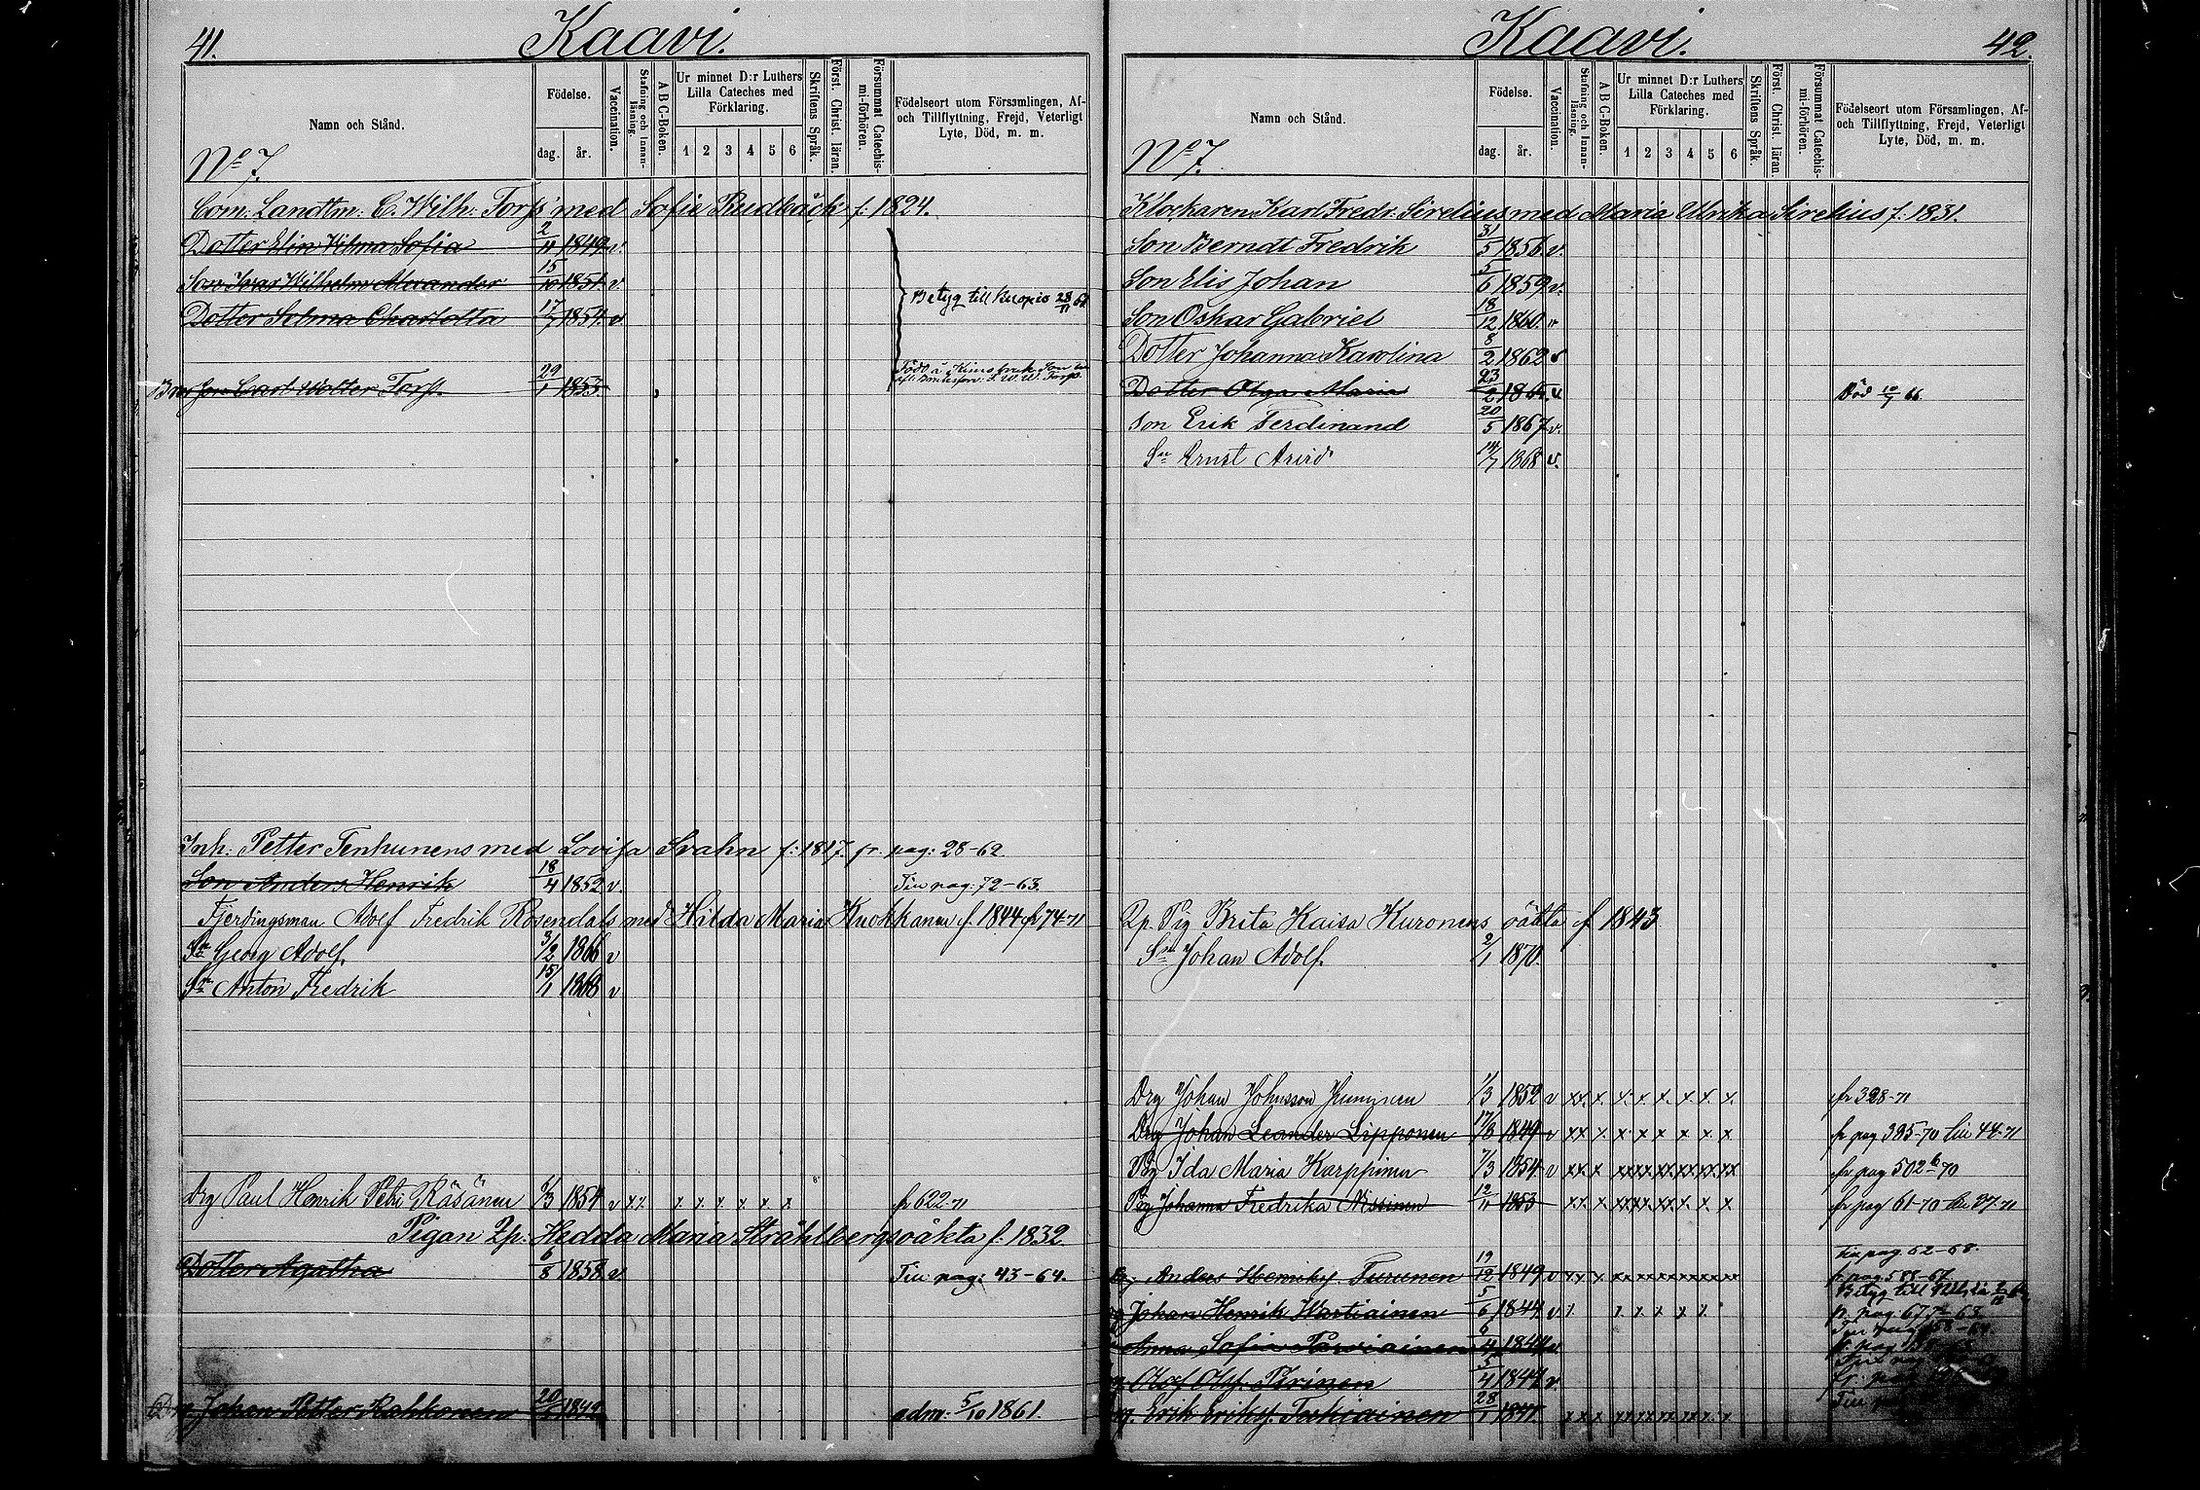 41.
Kaavi.
Namn och Stånd.
Födelse.
dag.
år.
Vaccination.
Stafning och Innan-
läsning.
A B C-Boken.
Ur minnet D:r Luthers
Lilla Cateches med
Förklaring.
1 2 3 4 5 6
Skriftens Språk.
Först. Christ. läran.
Försummat Catechis-
mi-förhören.
Födelseort utom Församlingen, Af-
och Tillflyttning, Frejd, Veterligt
Lyte, Död, m. m.
No 7.
Com. Landtm: C. Wilh: Forss med Sofie Rudbäck f: 1824.
Dotter Elin Wilma Sofia 2/11 1849 v.
Son Ivar Wilhelm Alexander 15/10 1851 v
Betyg till Kuopio 28/11
Dotter Selma Charlotta 17/7 1854 v
Född å
Carl Walter Forss. 29/1 1853.
Inh: Petter Tenhunens med Lovisa Svahn f: 1817. fr. pag: 28-62.
Son Anders Henrik 18/4 1852 v. Tin pag: 72-63.
Fjerdingsman Adolf Fredrik Rosendals med Hilda Maria f. 1844 fr 74-71
Sn Georg Adolf. 3/2 1866 v
Sn Anton Fredrik 15/1 1868 v
Drg Paul Henrik Petri Räsänen /3 1854 v x x x x x x x x fr 622-71
Pigan 2p: Hedda Maria Stråhlbergs oäkta f: 1832
Dotter Agatha 6/8 1858 v Tin pag: 43-64.
Johan Petter Rahkonen 20/ 1842 adm: 5/10 1861.
Kaavi.
42.
Namn och Stånd.
Födelse.
dag.
år.
Vaccination.
Stafning och Innan-
läsning.
A B C-Boken.
Ur minnet D:r Luthers
Lilla Cateches med
Förklaring.
1 2 3 4 5 6
Skriftens Språk.
Först. Christ. läran.
Försummat Catechis-
mi-förhören.
Födelseort utom Församlingen, Af-
och Tillflyttning, Frejd, Veterligt
Lyte, Död, m. m.
No 7.
Klockaren Karl Fredr: Sirelius med Maria Ulrika Sirelius f: 1831.
Son Berndt Fredrik 31/5 1856 v.
Son Elis Johan 5/6 1859 v.
Son Oskar Gabriel 18/12 1860. v
Dotter Johanna Karolina 8/2 1862 v
Dotter Olga Maria 23/2 v Död 10/1 66.
Son Erik Ferdinand 20/5 1867 v.
Sn Ernst Arvid 14/7 1868 v.
2p. Pig Brita Kaisa Kuronens oäkta f 1843
Sn Johan Adolf. 2/1 1870.
Drg Johan Johnsson 1/3 1852 v xx. x. x. x. x. x. x. x. fr 328-71
Drg Johan Leander Lipponen 17/8 1849 v xx x x x x x x x fr pag 385-70 tin 44-71
Pig Ida Maria Karppinen 7/3 1854 v xx x xx xx xx xx xx xx fr pag 502 70
Pig Johanna Fredrika Nissinen 12/11 1853 xx x fr pag 61-70
Anders Henriks. Turunen 19/12 1849 v Tin pag. 62-68.
fr. pag 588-67
Johan Henrik Wartiainen 5/6 1844 v x x x x x x Betyg till
Anna Sofia 6/4 1844 v
Olof Olofs. Pirinen 5/4 1844 v.
Erik Eriks. Tukiainen 28/1